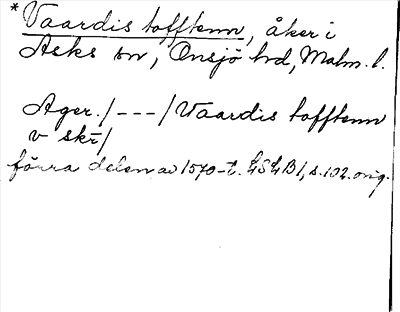 *Vaardis tofftenn, åker i
Asks sn, Onsjö hd, Malm. l.
Ager. / - - - / Waardis tofftenn
v skr̄ /
förra delen av 1570-t. LSLB 1, s. 102. orig.